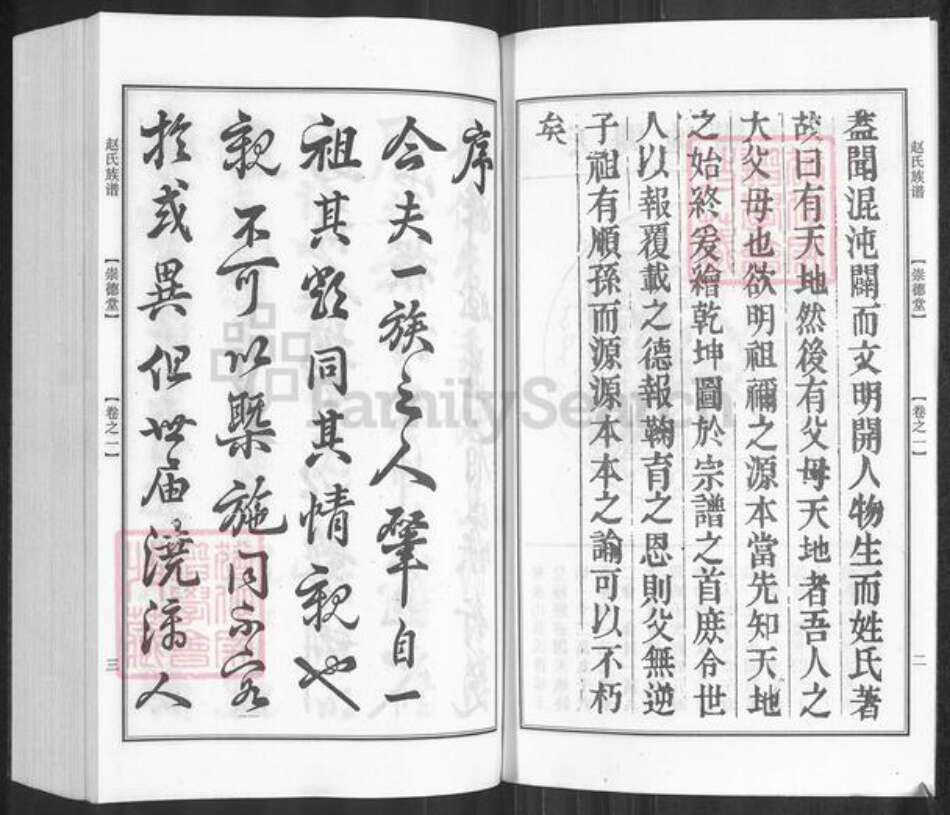 赵氏族谱
【崇德堂】
【卷之一】
二
蓋聞混沌闢而文明開人物生而姓氏著
故曰有天地然後有父母天地者吾人之
大父母也欲明祖禰之源本當先知天地
之始終爰繪乾坤圖於宗譜之首庶令世
人以報覆載之德報鞠育之恩則父無逆
子祖有順孫而源源本本之論可以不朽
矣
序
今夫一族之人肇自一
祖其類同其情親也
親不可以槩施同不容
於或異但世届澆漓人
赵氏族谱
【崇德堂】
【卷之一】
三
FamilySearch